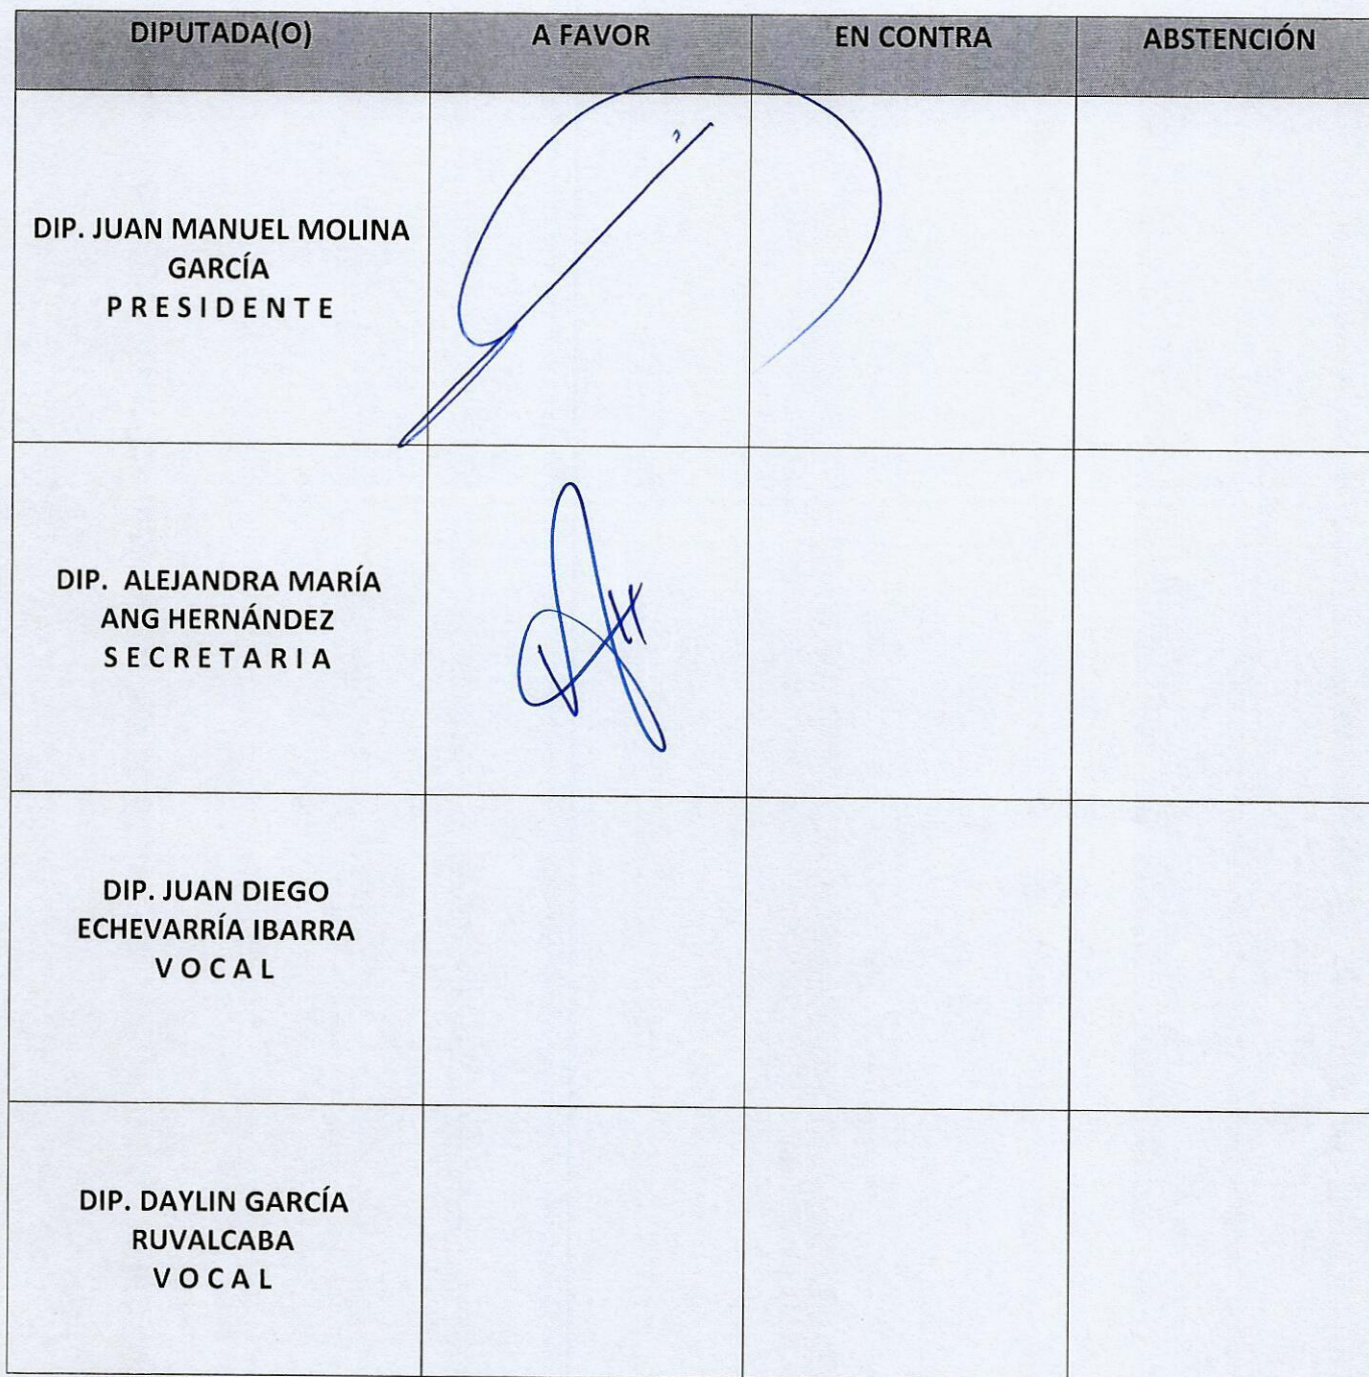 DIPUTADA(O) A FAVOR EN CONTRA ABSTENCIÓN
DIP. JUAN MANUEL MOLINA
GARCÍA
P R E S I D E N T E
DIP. ALEJANDRA MARÍA
ANG HERNÁNDEZ
S E C R E T A R I A
DIP. JUAN DIEGO
ECHEVARRÍA IBARRA
V O C A L
DIP. DAYLIN GARCÍA
RUVALCABA
V O C A L